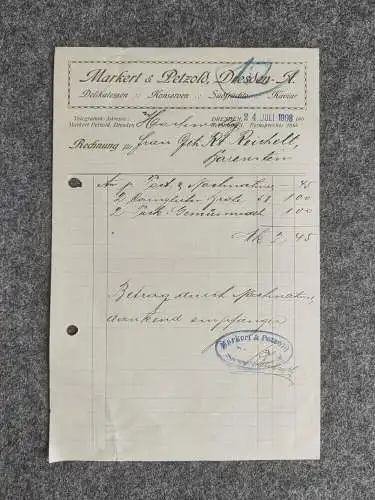 Markert & Petzold, Dresden-A.
Delikatessen :: Konserven :: Südfrüchte :: Kaviar
Telegramm-Adresse:
Markert Petzold, Dresden
DRESDEN, 24. JULI 1908 190
Rechnung für Frau Geh. Rt. Reichelt,
Bärenstein
An p. Post & Nachnahme — 45
2 1 00
2 Pack. 1 00
Mk 2,45
Betrag durch Nachnahme
dankend empfangen
Markert & Petzold